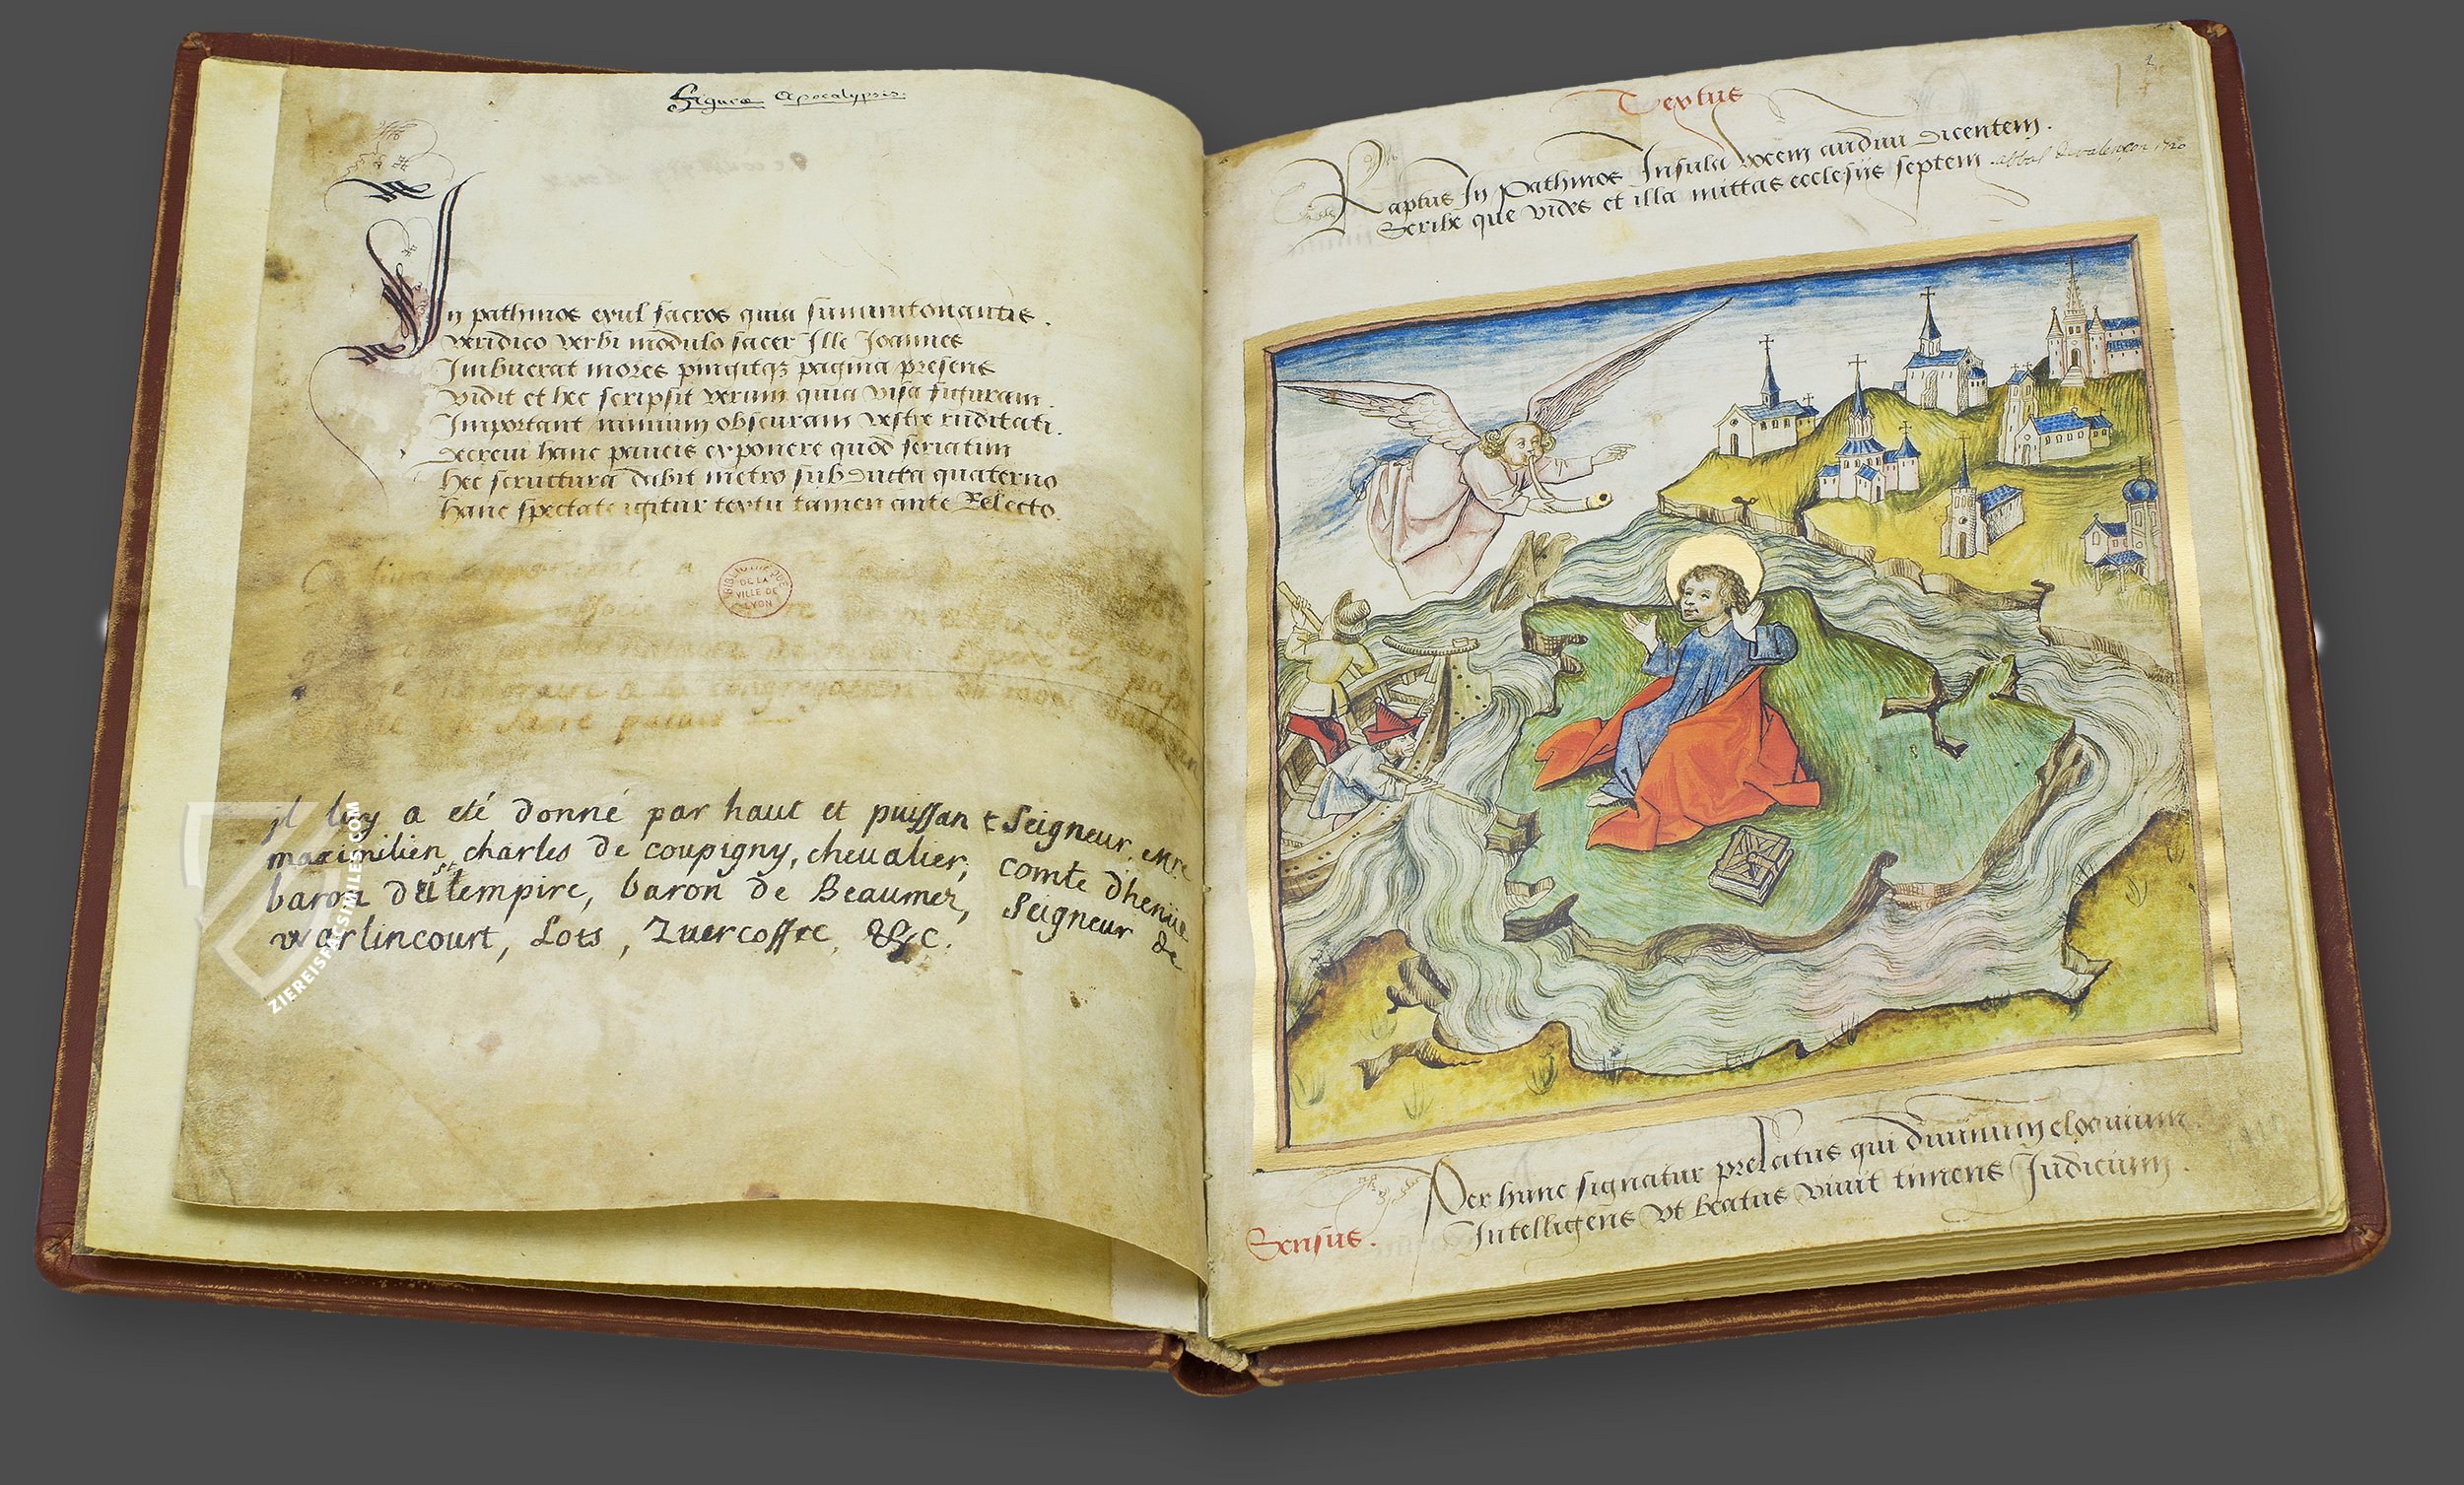 Figuræ Apocalypsis.
In pathmos exul sacros quia summitonantis.
veridico verbi modulo sacer Ille Joannes
Imbuerat mores pingitqz pagina presens
vidit et hec scripsit verum quia visa figuram.
Important nimium obscuram vestre ruditati.
decrevi hanc paucis exponere quod seriatim
hec scruttura dabit metro sub ducta quaterno
hanc spectate igitur textu tamen ante Relecto.
BIBLIOTHEQUE
DE LA
VILLE DE
LYON
associe
congregation
palais
jl luy a eté donné par haut et puissant Seigneur, Mre
maximilien charles de coupigny, chevalier, comte dhenüe
baron du st empire, baron de Beaumez, Seigneur de
warlincourt, Lots, Zuercoffre, &c.
ZIEREISFACSIMILE.COM
2
Textus
Raptus In pathmos Insula vocem audivi dicentem.
Scribe que vides et illa mittas ecclesiis septem.
Per hunc signatur prelatus qui divinum eloquium.
Sensus. Intelligens vt beatus vivit timens Judicium.